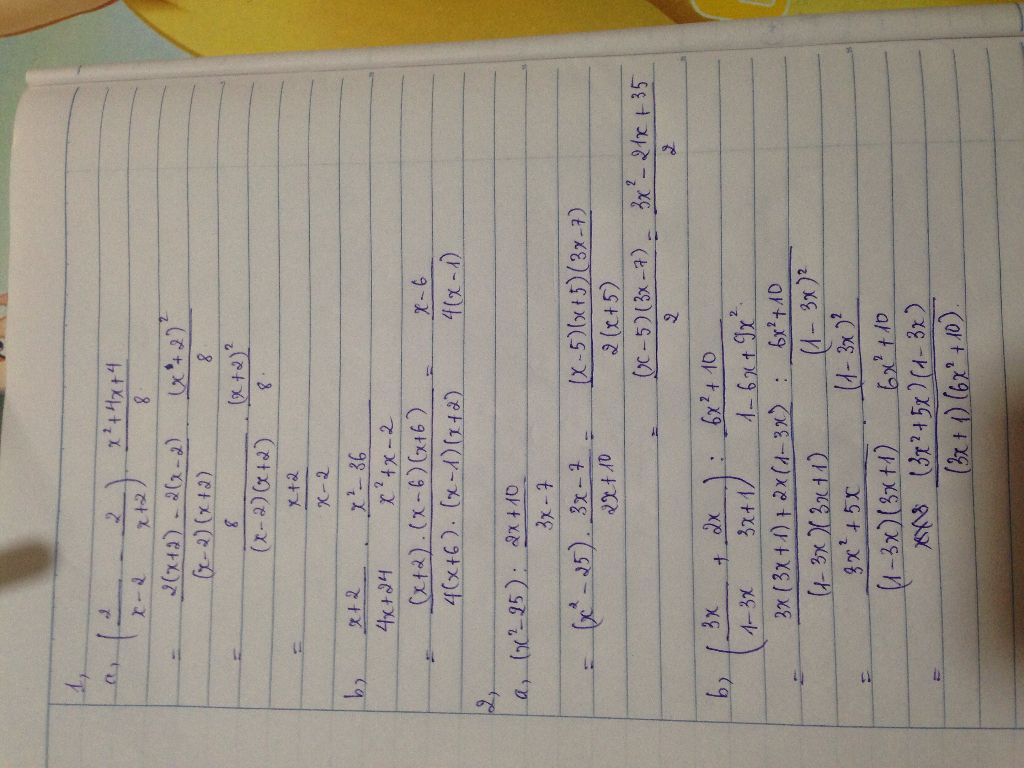 1,
a, (2/(x-2) - 2/(x+2)) . (x²+4x+4)/8
= (2(x+2) - 2(x-2))/((x-2)(x+2)) . (x+2)²/8
= 8/((x-2)(x+2)) . (x+2)²/8
= (x+2)/(x-2)
b, (x+2)/(4x+24) . (x²-36)/(x²+x-2)
= ((x+2).(x-6)(x+6))/(4(x+6).(x-1)(x+2)) = (x-6)/(4(x-1))
2,
a, (x²-25) : (2x+10)/(3x-7)
= (x²-25) . (3x-7)/(2x+10) = ((x-5)(x+5)(3x-7))/(2(x+5))
= ((x-5)(3x-7))/2 = (3x²-21x+35)/2
b, (3x/(1-3x) + 2x/(3x+1)) : (6x²+10)/(1-6x+9x²)
= (3x(3x+1)+2x(1-3x))/((1-3x)(3x+1)) : (6x²+10)/(1-3x)²
= (3x²+5x)/((1-3x)(3x+1)) . (1-3x)²/(6x²+10)
= ((3x²+5x)(1-3x))/((3x+1)(6x²+10)).